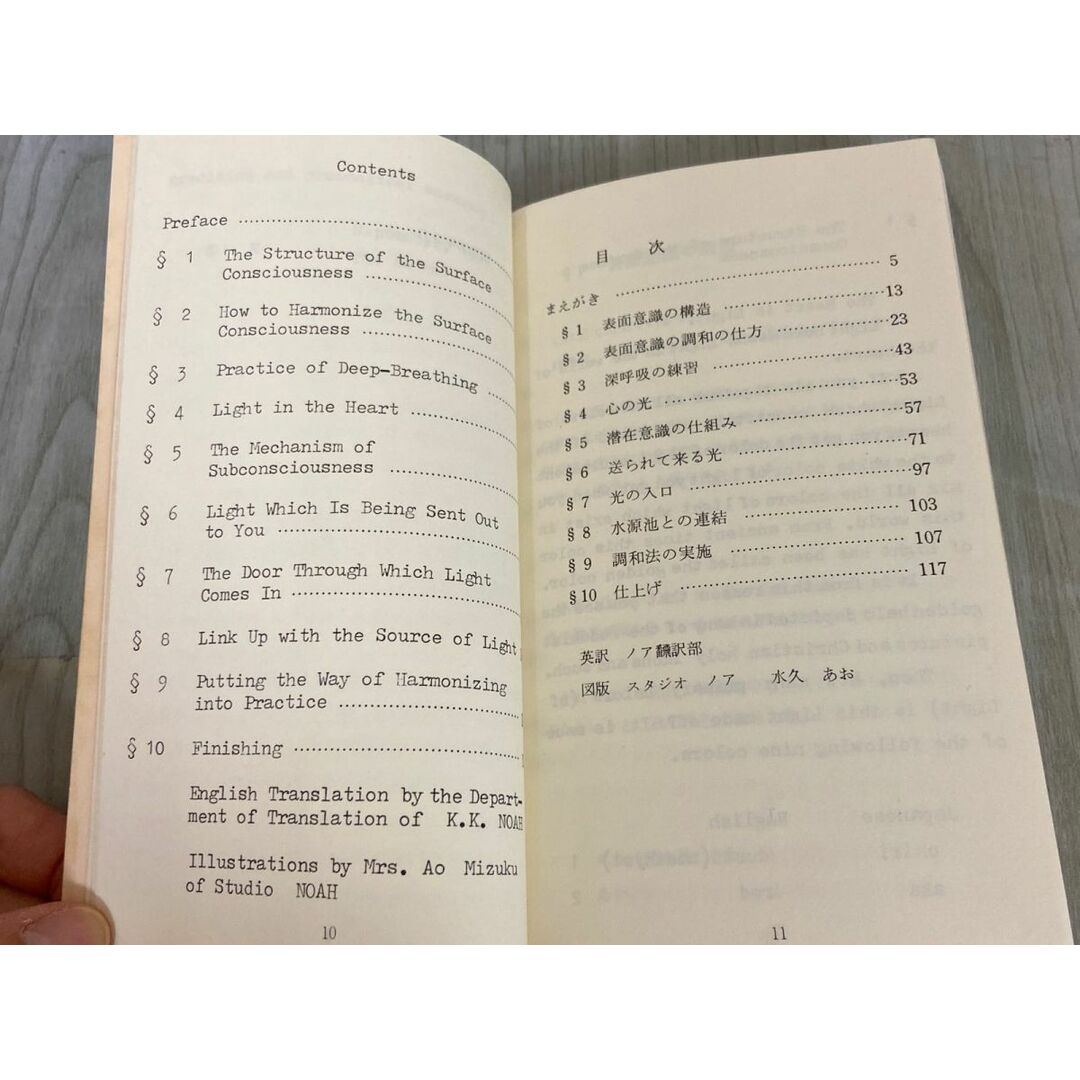 Contents
Preface ........................
§ 1 The Structure of the Surface
Consciousness ..................
§ 2 How to Harmonize the Surface
Consciousness ..................
§ 3 Practice of Deep-Breathing ....
§ 4 Light in the Heart ............
§ 5 The Mechanism of
Subconsciousness ...............
§ 6 Light Which Is Being Sent Out
to You .........................
§ 7 The Door Through Which Light
Comes In .......................
§ 8 Link Up with the Source of Light
§ 9 Putting the Way of Harmonizing
into Practice ..................
§ 10 Finishing .....................
English Translation by the Depart-
ment of Translation of K.K. NOAH
Illustrations by Mrs. Ao Mizuku
of Studio NOAH
10
目 次
まえがき ........................ 5
§1 表面意識の構造 ........................13
§2 表面意識の調和の仕方 ........................23
§3 深呼吸の練習 ........................43
§4 心の光 ........................53
§5 潜在意識の仕組み ........................57
§6 送られて来る光 ........................71
§7 光の入口 ........................97
§8 水源池との連結 ........................103
§9 調和法の実施 ........................107
§10 仕上げ ........................117
英訳 ノア飜訳部
図版 スタジオ ノア 水久 あお
11